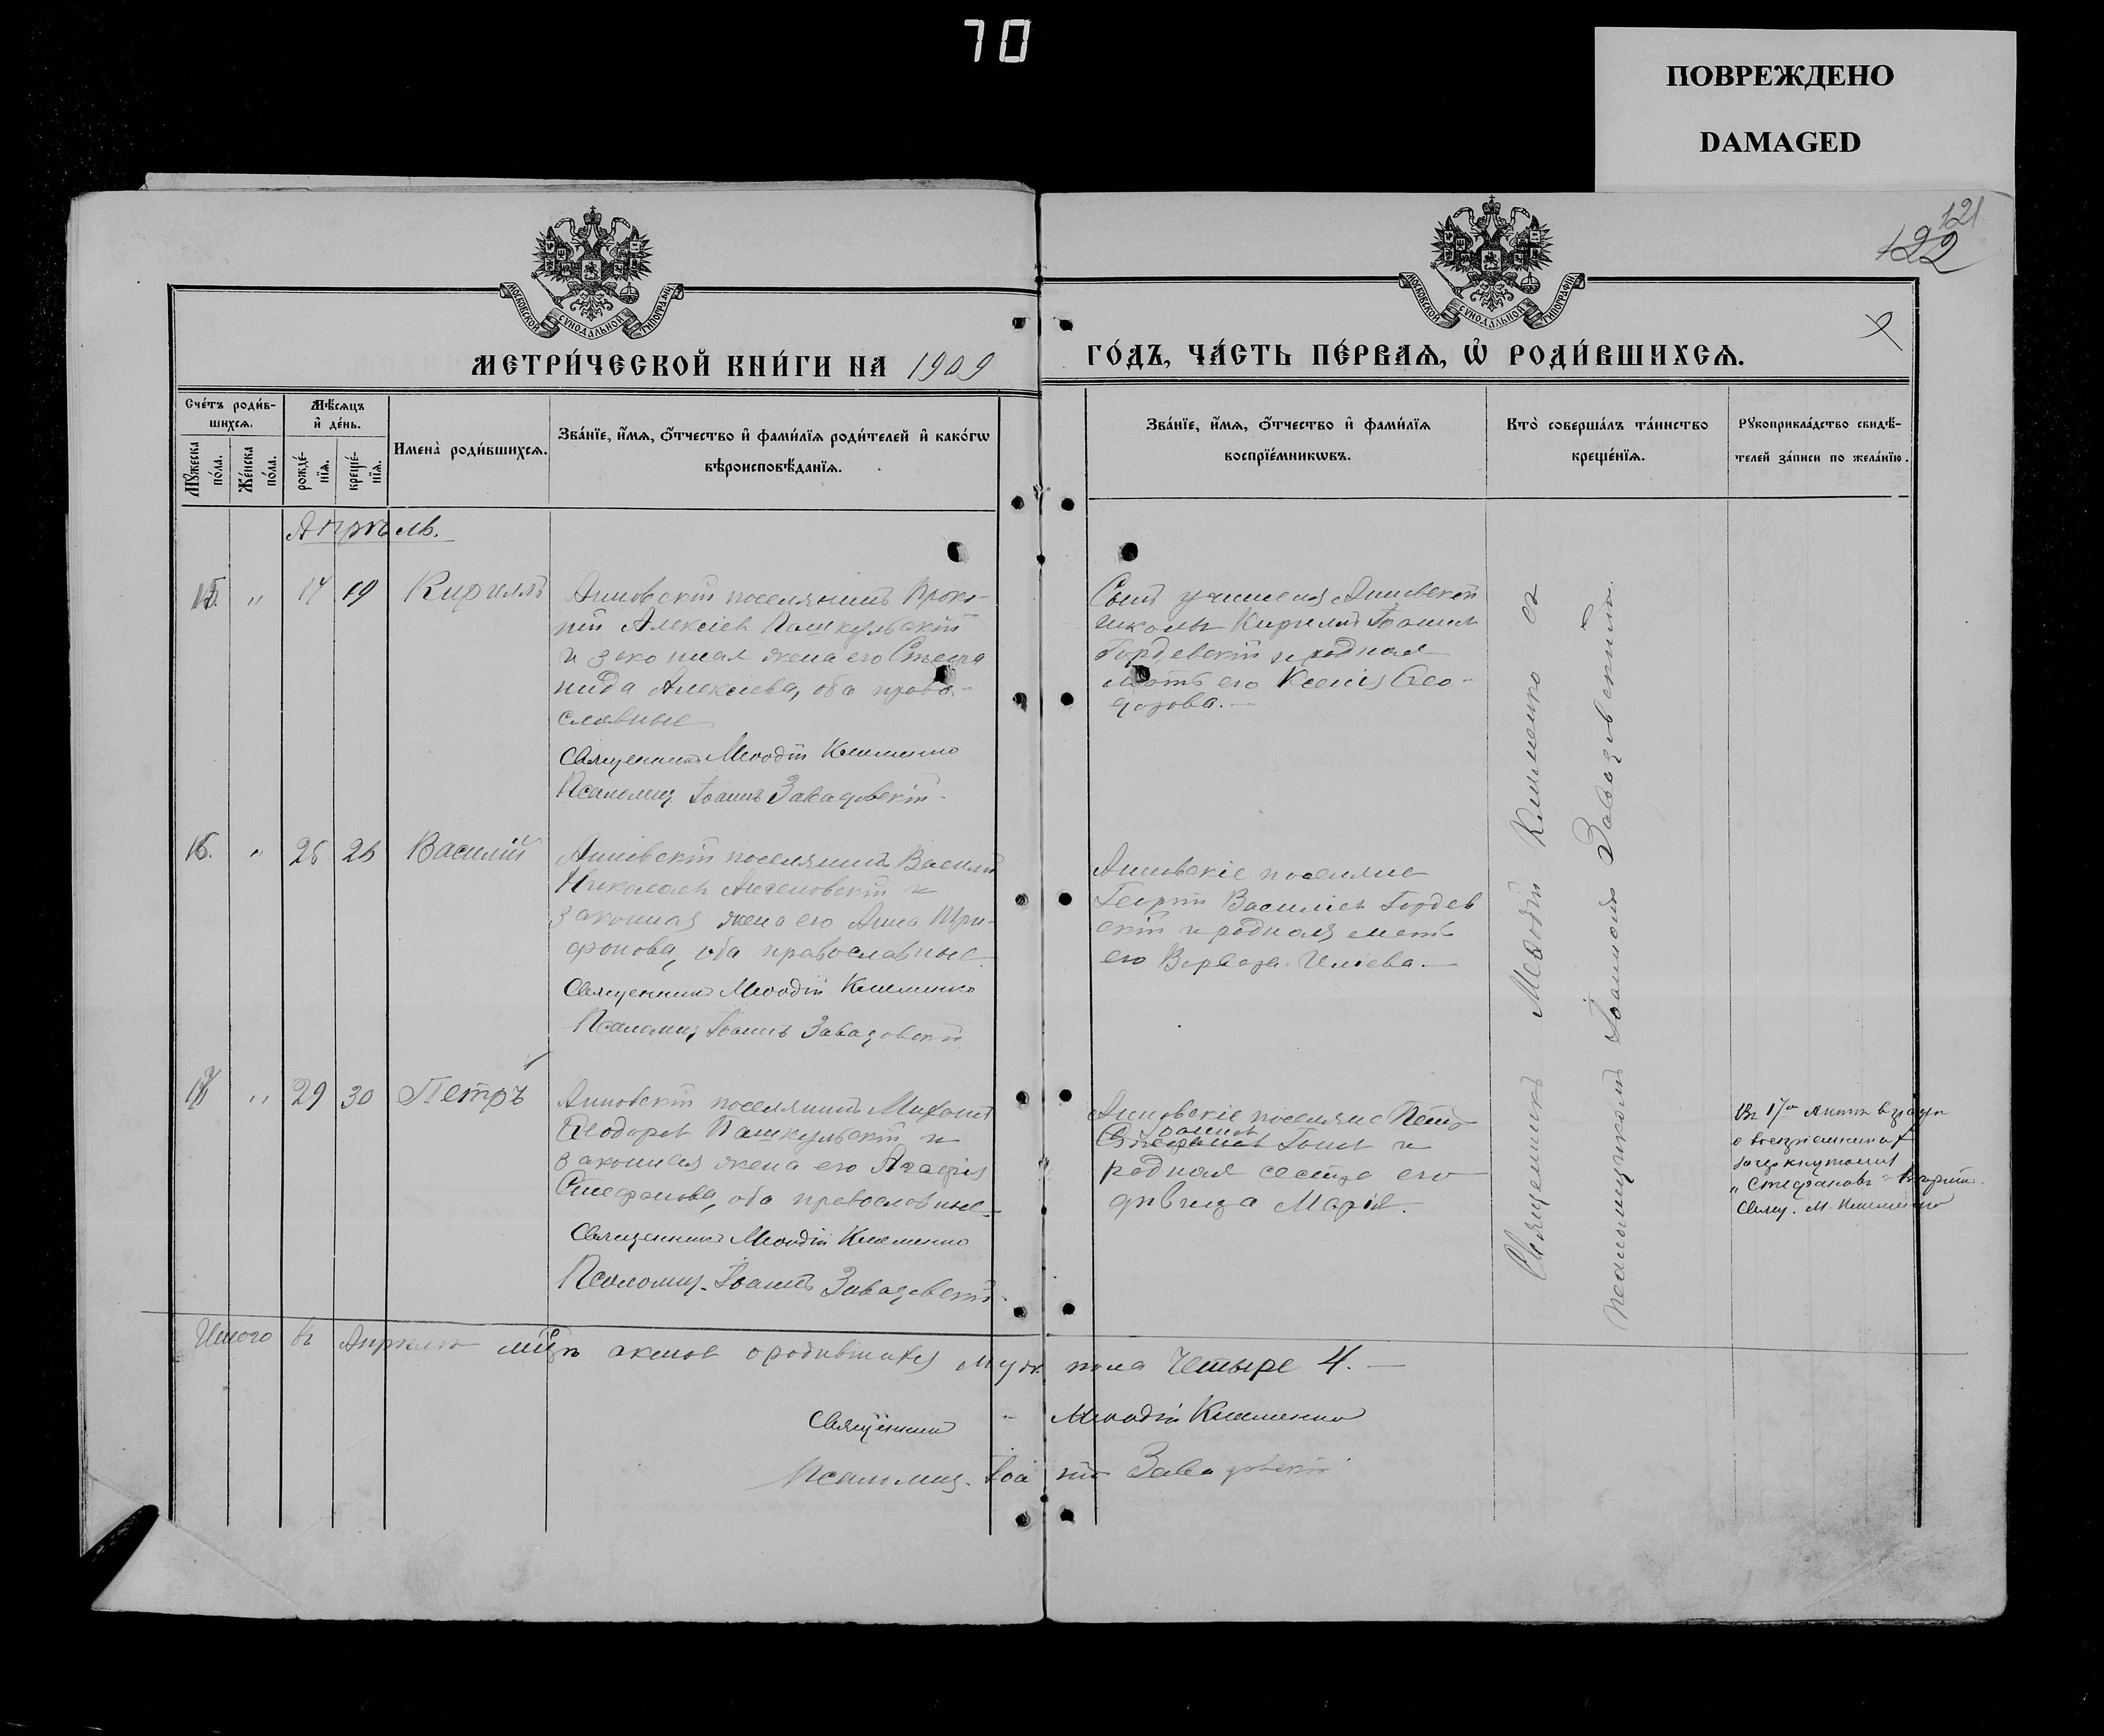 70
ПОВРЕЖДЕНО
DAMAGED
121
122
МОСКОВСКОЙ СУНОДАЛЬНОЙ ТИПОГРАФІИ
МОСКОВСКОЙ СУНОДАЛЬНОЙ ТИПОГРАФІИ
МЕТРИ́ЧЕСКОЙ КНИ́ГИ НА 1909
ГО́ДЪ, ЧА́СТЬ ПЕ́РВАЯ, Ѡ҆ РОДИ́ВШИХСЯ.
Сче́тъ роди́в-
шихся.
Мꙋ́жеска по́ла.
Же́нска по́ла.
Мѣ́сяцъ
и҆ де́нь.
рожде́-
нїя.
креще́-
нїя.
Имена̀ роди́вшихся.
Зва́нїе, и҆́мя, ѻ҆́тчество и҆ фами́лїя роди́телей и҆ како́гѡ
вѣроисповѣ́данїя.
Зва́нїе, и҆́мя, ѻ҆́тчество и҆ фами́лїя
воспрїе́мникѡвъ.
Кто̀ соверша́лъ та́инство
креще́нїя.
Рꙋкоприкла́дство свидѣ́-
телей за́писи по жела́нїю.
Апрѣль.
15. " 17 19 Кириллъ
Анновскій поселянинъ Проко-
пій Алексіевъ Пашкульскій
и законная жена его Стефа
нида Алексіева, оба право-
славные
Священникъ Меѳодій Клименко
Псаломщ. Іоаннъ Завадовскій
Сынъ учителя Анновской
школы Кириллъ Іоанновъ
Гордевскій и родная
мать его Ксенія Ѳео-
дорова.—
16. " 25 26 Василій
Анновскій поселянинъ Василій
Николаевъ и
законная жена его Анна Три-
фонова, оба православные
Священникъ Меѳодій Клименко
Псаломщ. Іоаннъ Завадовскій
Анновскіе поселяне
Георгій Василіевъ Гордев
скій и родная мать
его Варвара Иліева.—
17 " 29 30 Петръ
Анновскій поселянинъ Михаилъ
Ѳеодоровъ Пашкульскій и
законная жена его Агафія
Стефанова, оба православные
Священникъ Меѳодій Клименко
Псаломщ. Іоаннъ Завадовскій
Анновскіе поселяне Петръ
Іоанновъ
Стефановъ и
родная сестра его
дѣвица Марія.
Священникъ Меѳодій Клименко съ
псаломщикомъ Іоанномъ Завадовскимъ.
Въ 17мъ актѣ въ графѣ
о воспріемникахъ
зачеркнутому
"Стефановъ" не вѣрить.
Свящ. М. Клименко
Итого въ Апрѣлѣ мѣсцѣ актовъ о родившихся муж. пола Четыре 4.—
Священникъ Меѳодій Клименко
Псаломщ. Іоаннъ Завадовскій